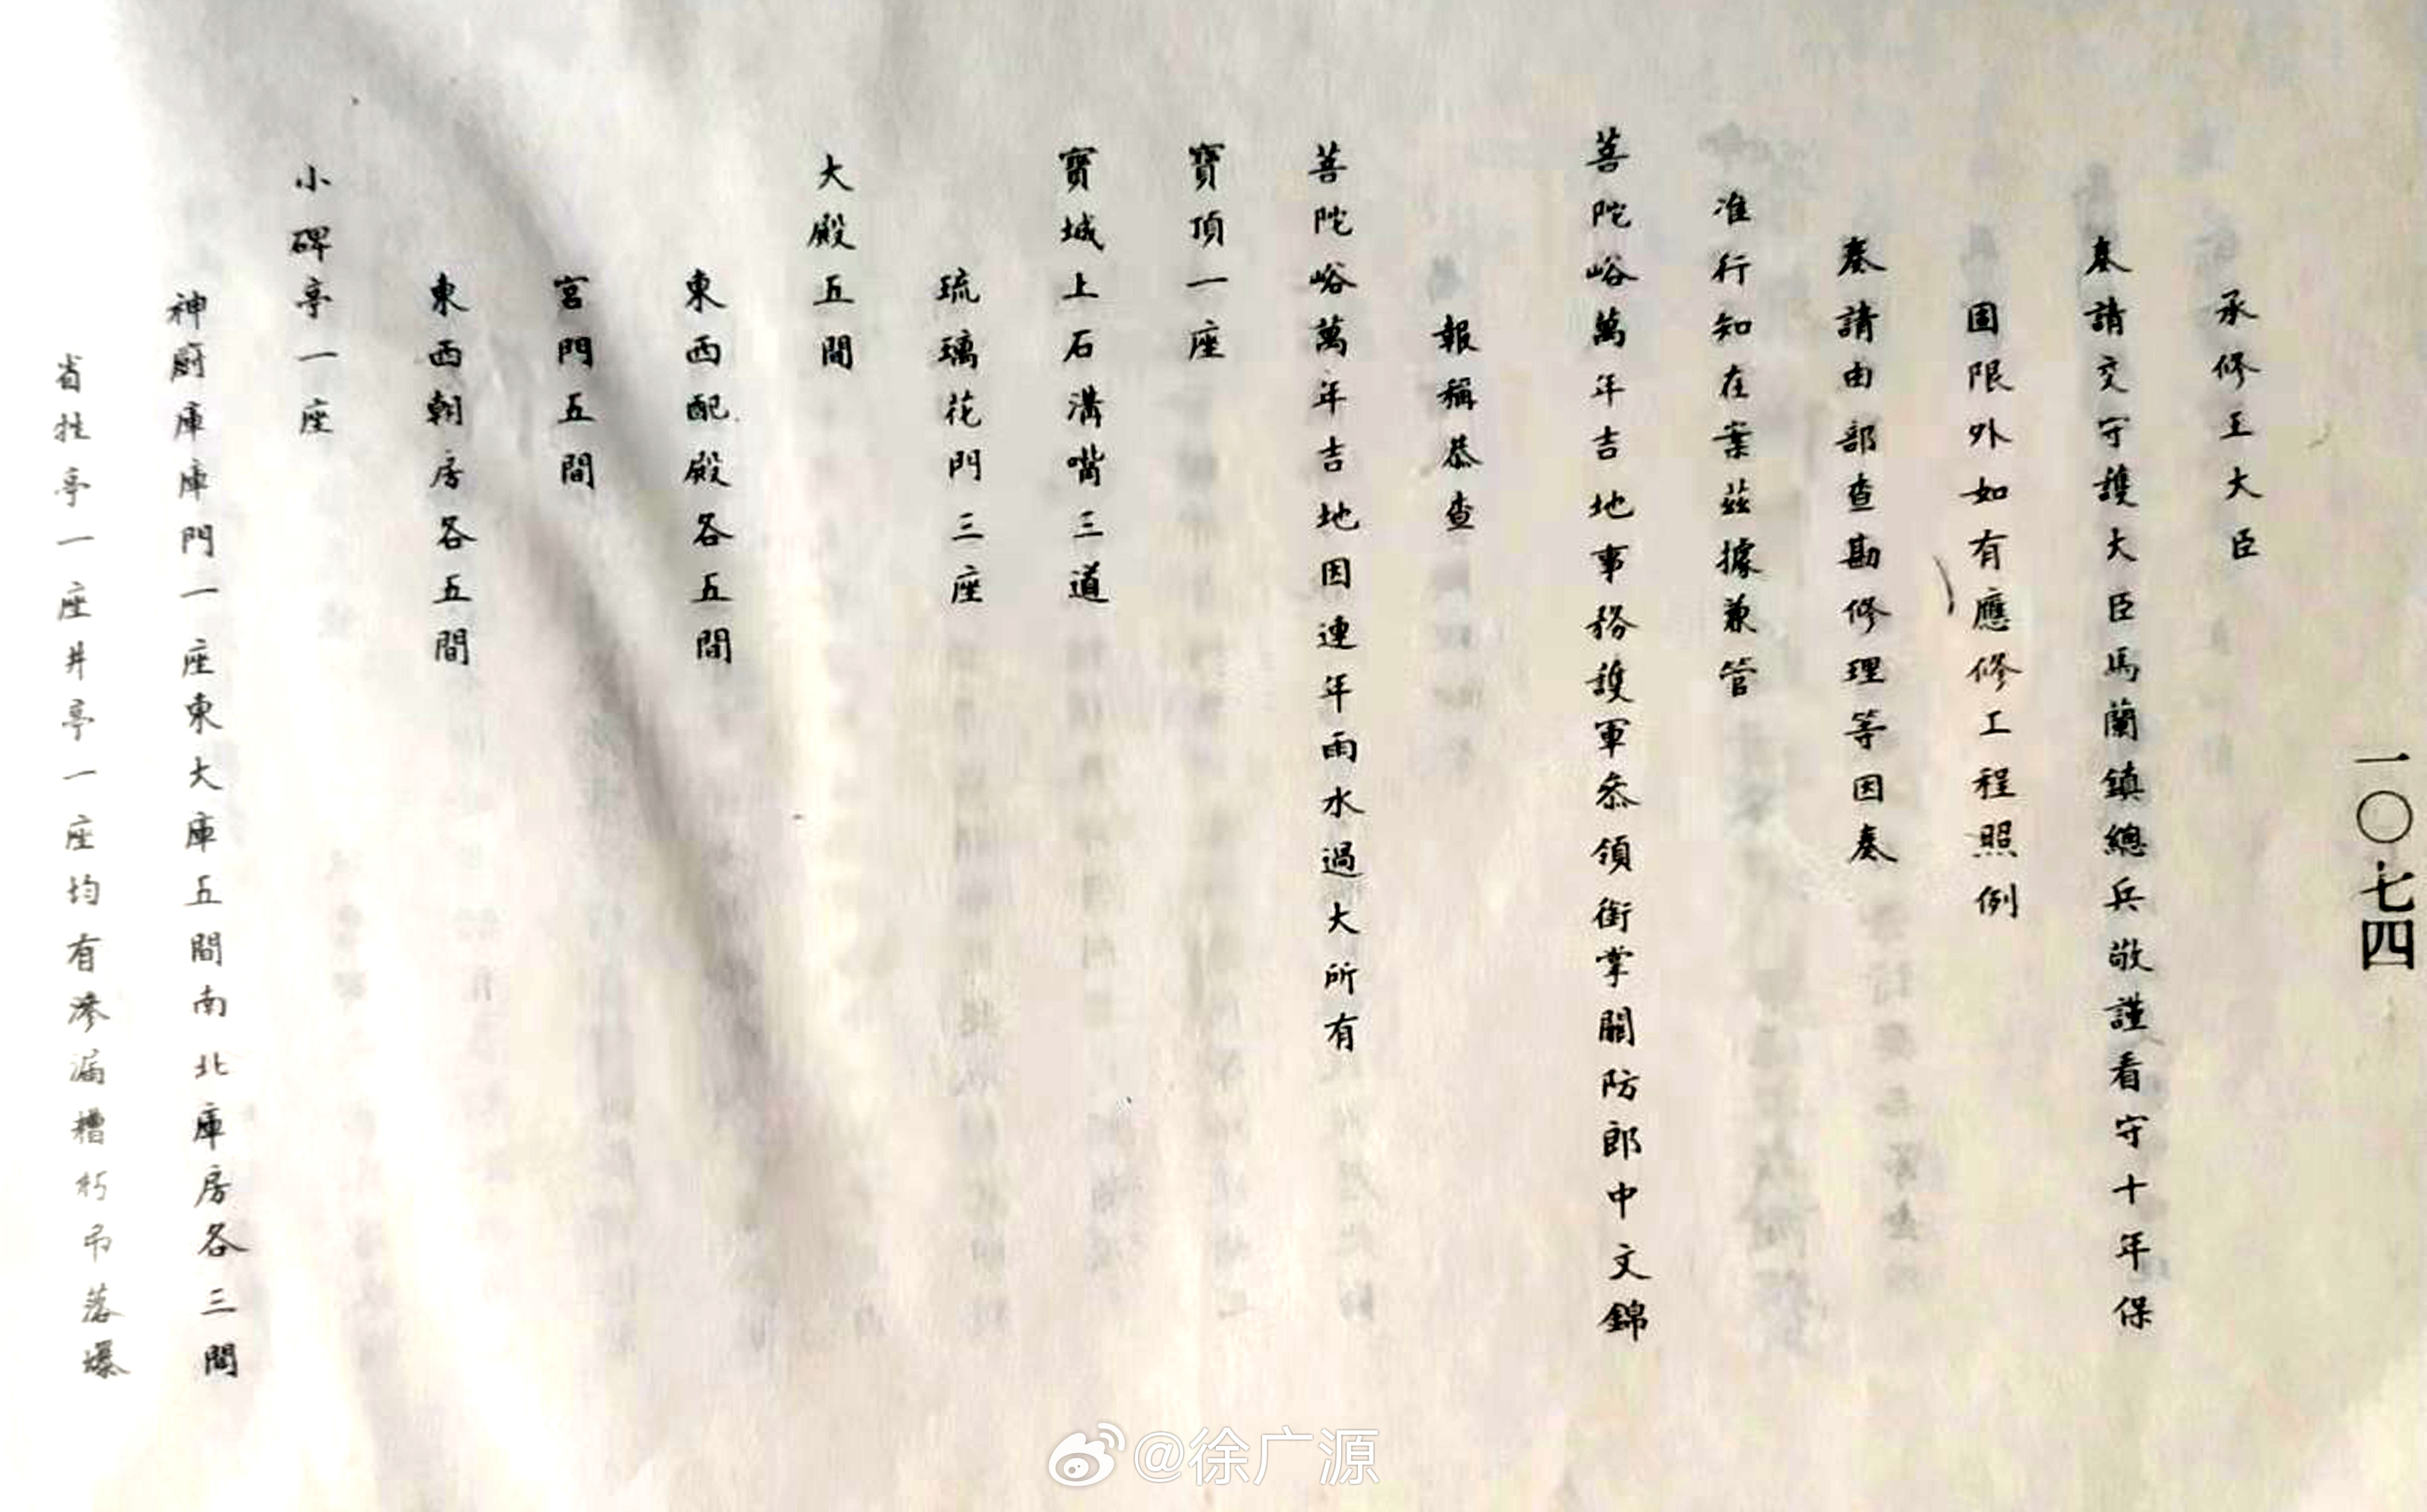 一〇七四
承修王大臣
奏請交守護大臣馬蘭鎮總兵敬謹看守十年保
固限外如有應修工程照例
奏請由部查勘修理等因奏
准行知在案茲據兼管
菩陀峪萬年吉地事務護軍叅領銜掌關防郎中文錦
報稱恭查
菩陀峪萬年吉地因連年雨水過大所有
寶頂一座
寶城上石溝嘴三道
琉璃花門三座
大殿五間
東西配殿各五間
宮門五間
東西朝房各五間
小碑亭一座
神廚庫庫門一座東大庫五間南北庫房各三間
省牲亭一座井亭一座均有滲漏糟朽吊落爆
@徐广源